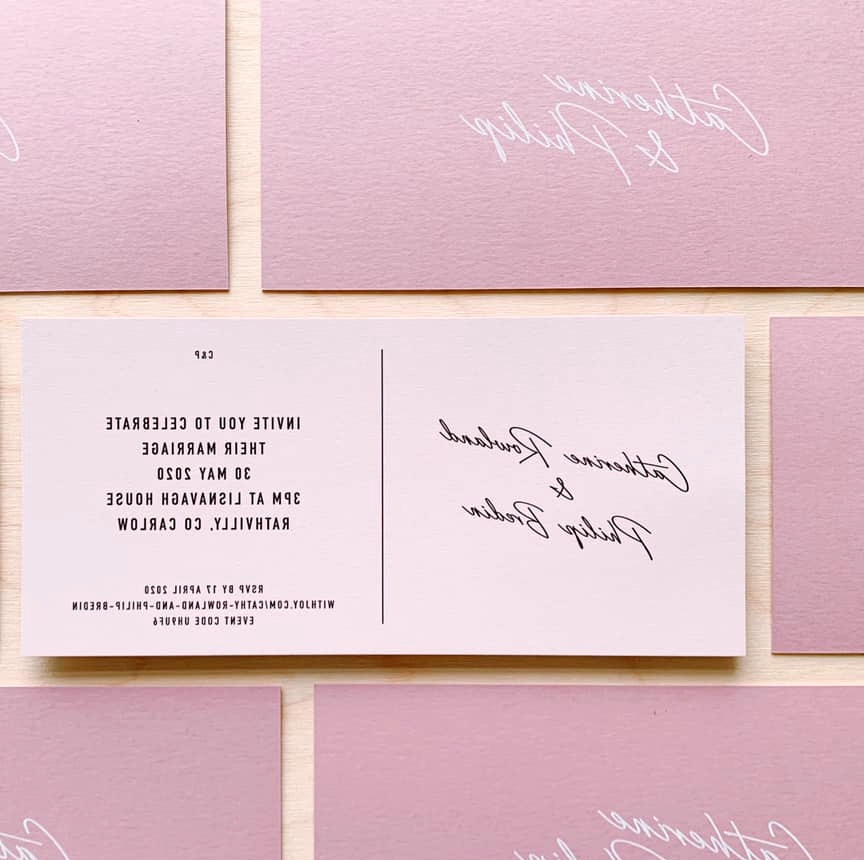 Catherine
& Philip
Catherine Rowland
&
Philip Bredin
C&P
INVITE YOU TO CELEBRATE
THEIR MARRIAGE
30 MAY 2020
3PM AT LISNAVAGH HOUSE
RATHVILLY, CO CARLOW
RSVP BY 17 APRIL 2020
WITHJOY.COM/CATHY-ROWLAND-AND-PHILIP-BREDIN
EVENT CODE UH9UF6
Catherine
& Philip